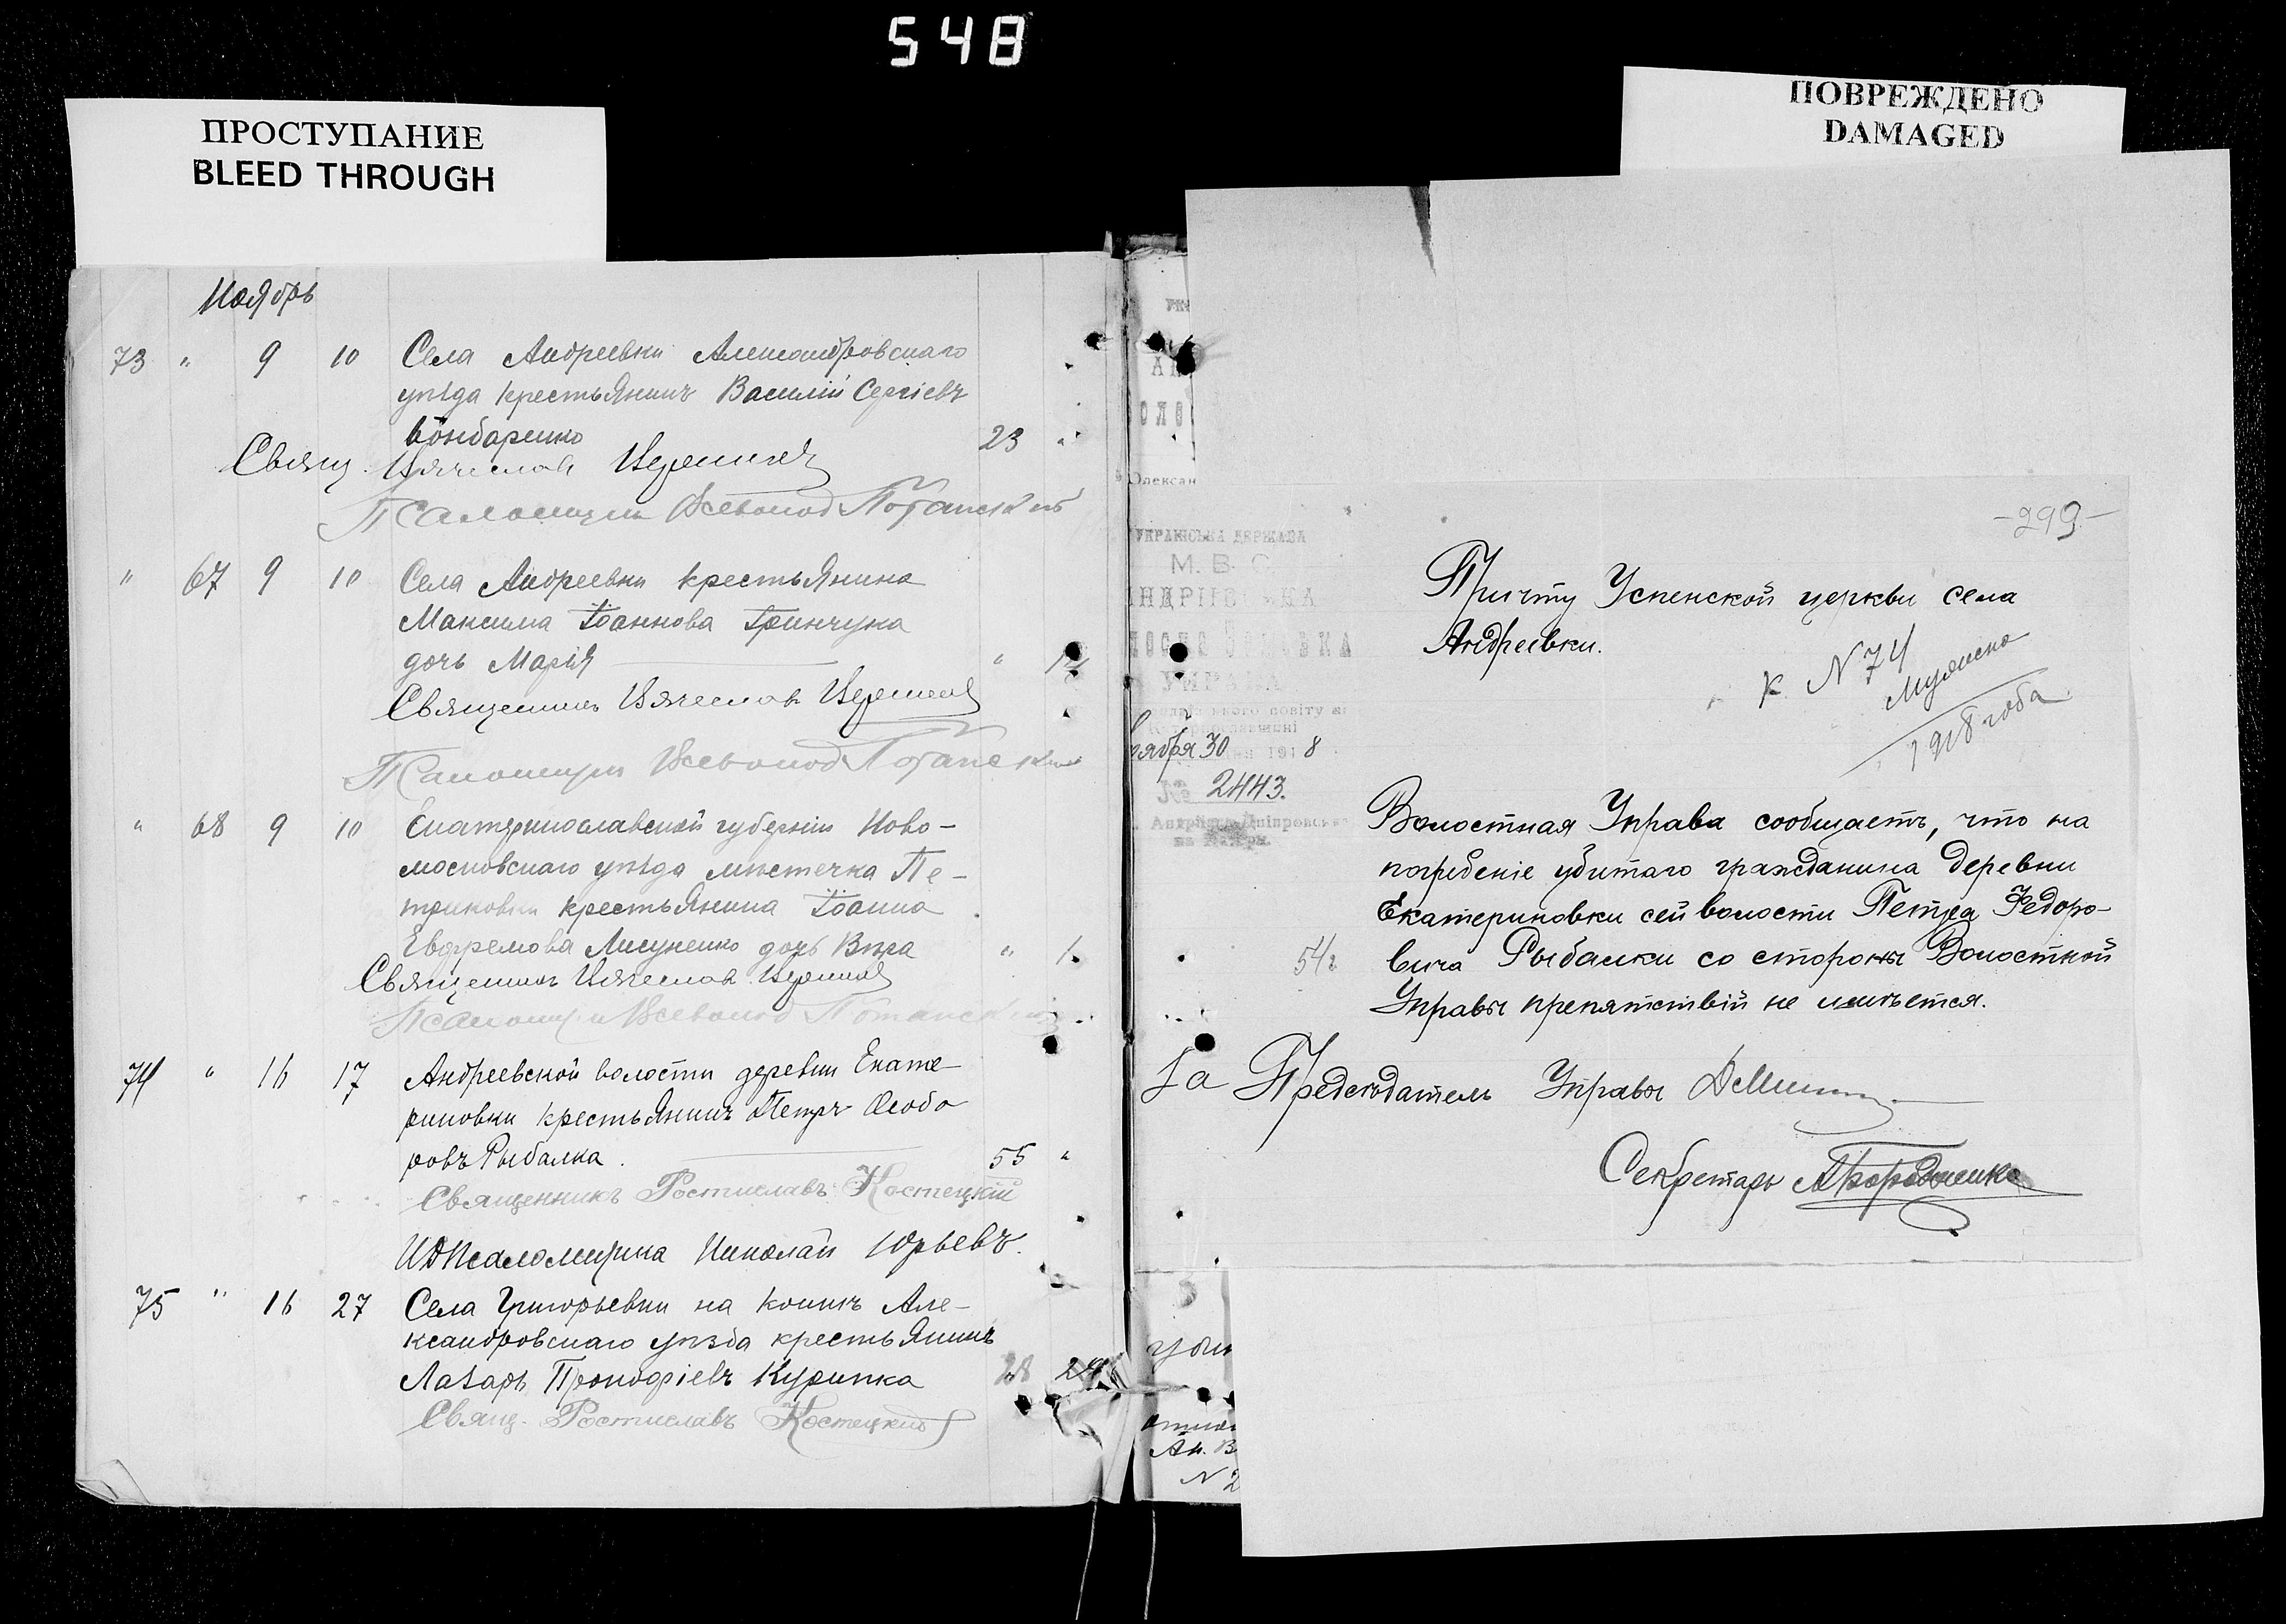 548
ПРОСТУПАНИЕ
BLEED THROUGH
ПОВРЕЖДЕНО
DAMAGED
Ноябрь
73 " 9 10 Села Андреевки Александровскаго
уѣзда крестьянинъ Василій Сергіевъ
Бондаренко 23 "
Свящ. Вячеслав
Псаломщик Всеволод
" 67 9 10 Села Андреевки крестьянина
Максима Іоаннова Гринчука
дочь Марія "
Священникъ Вячеслав
Псаломщик Всеволод
" 68 9 10 Екатеринославской губерніи Ново-
московскаго уѣзда мѣстечка Пе-
триковки крестьянина Іоанна
Евфремова Лисуненко дочь Вѣра "
Священникъ Вячеслав
Псаломщик Всеволод
74 " 16 17 Андреевской волости деревни Екате-
риновки крестьянинъ Петръ Ѳеодо
ровъ Рыбалка. 55 "
Священникъ Ростиславъ Костецкій
ИД Псаломщика Николай Юрьевъ.
75 " 16 27 Села Григорьевки на Конкѣ Але-
ксандровскаго уѣзда крестьянинъ
Лазарь Прокофіевъ Курипка
Свящ. Ростиславъ Костецкій
-299-
Причту Успенской церкви села
Андреевки.
к N 74
Мужеска
1918 года
УКРАЇНСЬКА ДЕРЖАВА
М. В. С.
ября 30 1918
№ 2443.
Волостная Управа сообщаетъ, что на
погребеніе убитаго гражданина деревни
Екатериновки сей волости Петра Федоро-
вича Рыбалки со стороны Волостной
Управы препятствій не имѣется.
За Предсѣдатель Управы
Секретарь
Ан. В
N 2